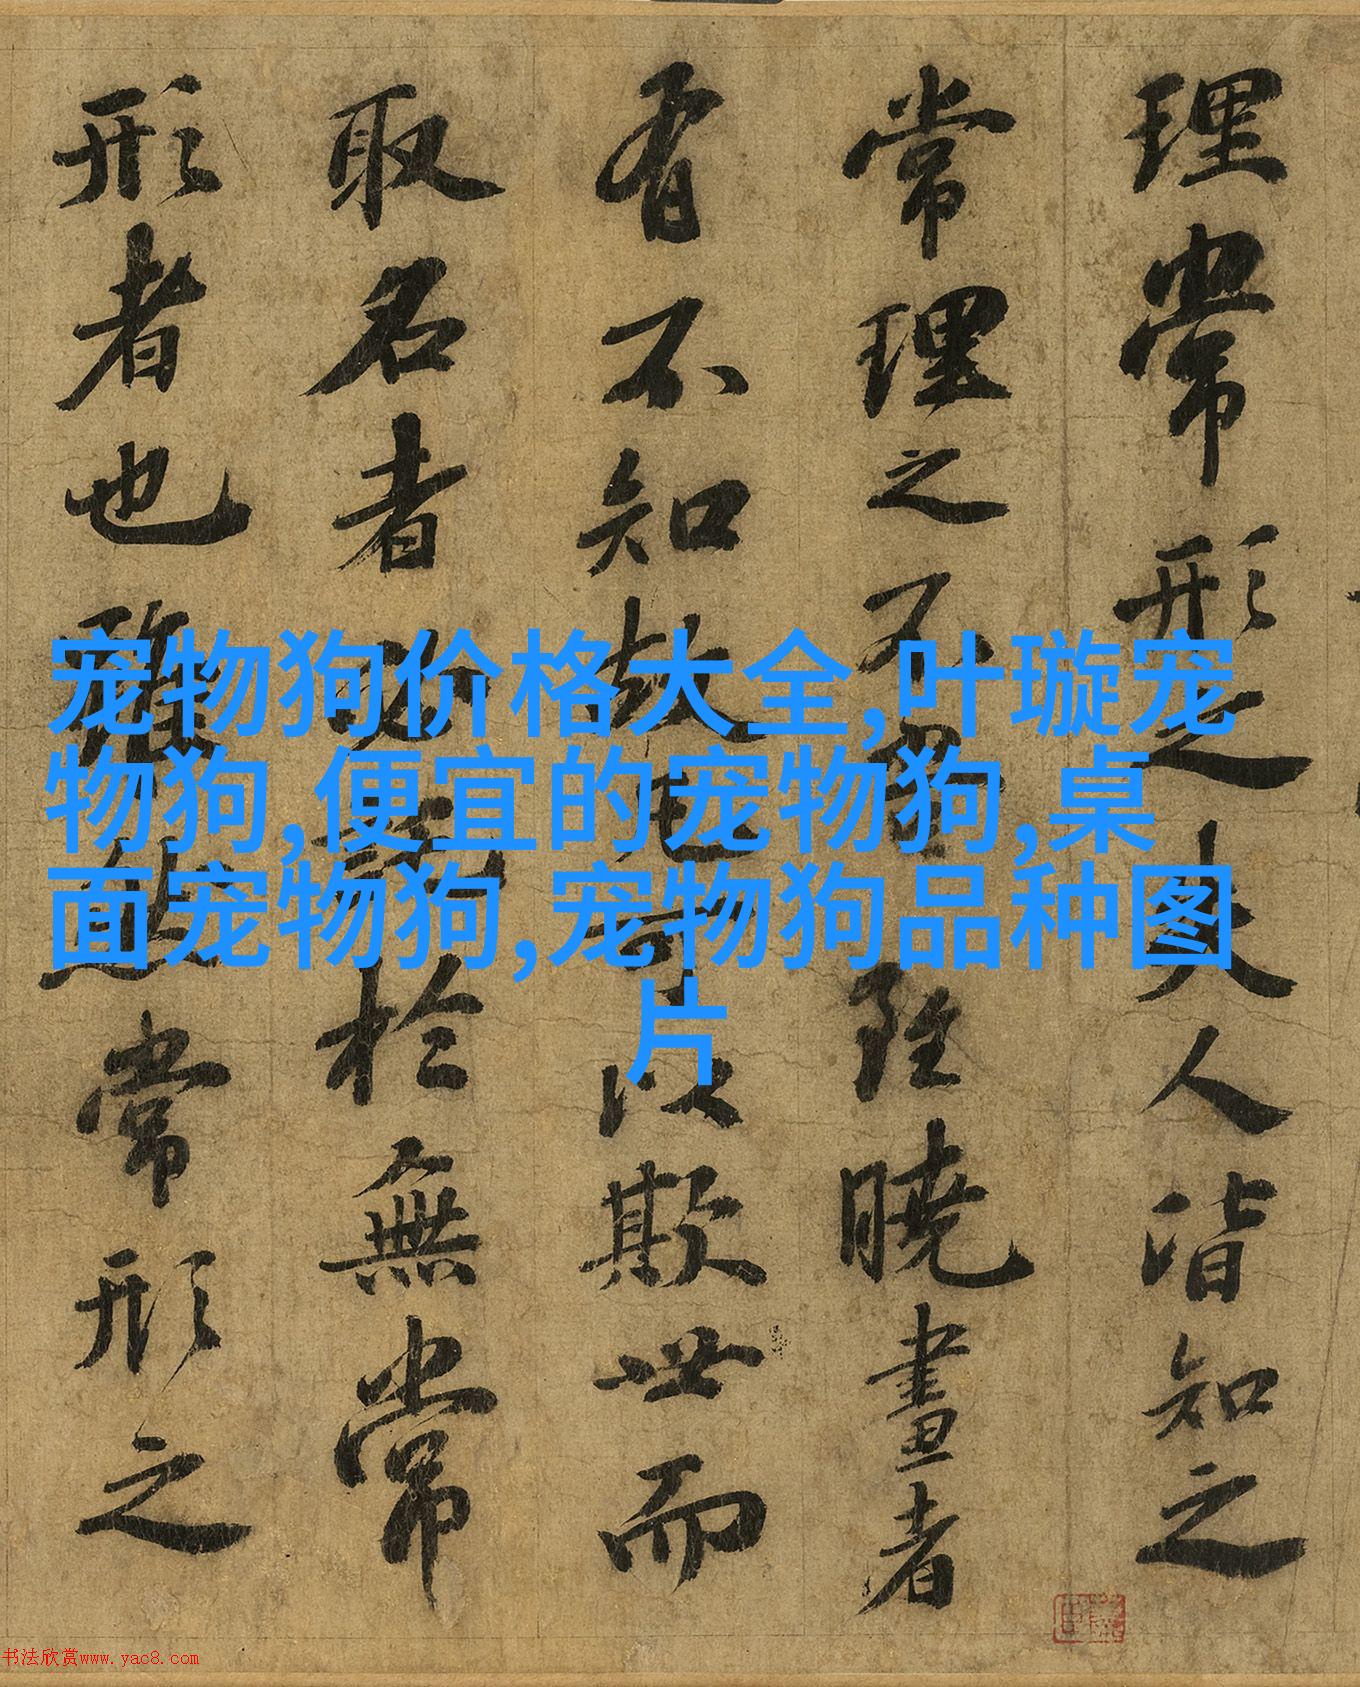 理常形之失人皆知之
常理之不當雖曉畫者
有不知故凡可以欺世而
取名者必託於無常
形者也雖然常形之
宠物狗价格大全,叶璇宠
物狗,便宜的宠物狗,桌
面宠物狗,宠物狗品种图
片
书法欣赏www.yac8.com